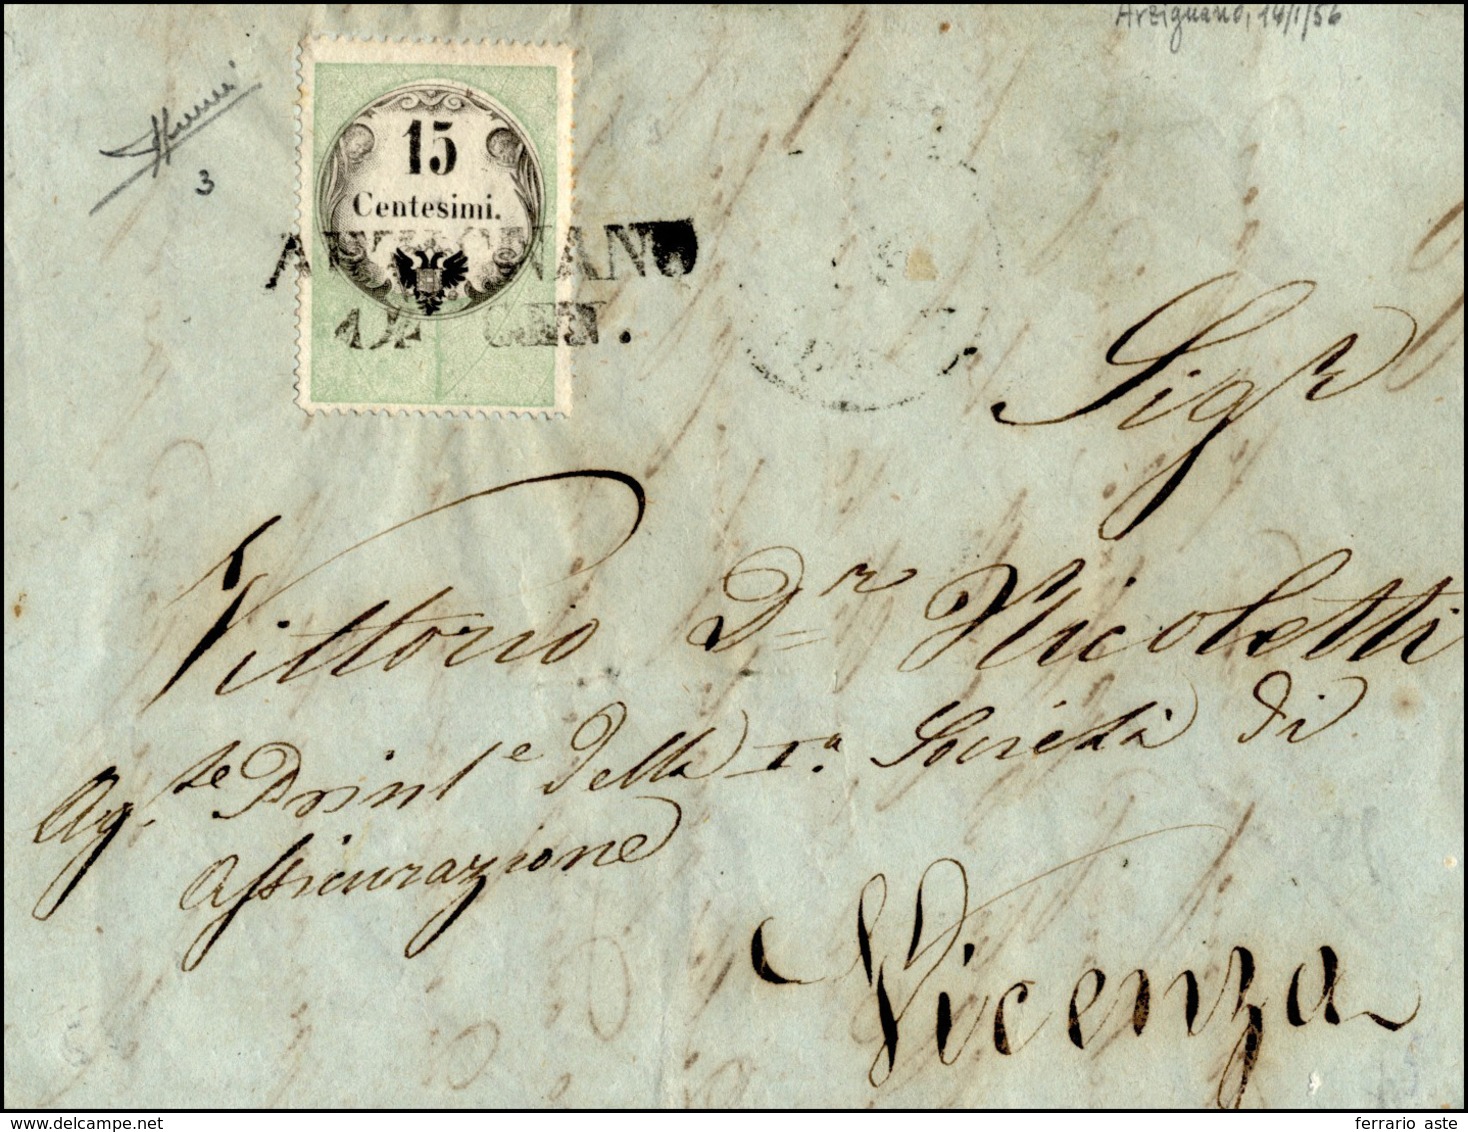 Arzignano, 14/1/56
3
15
Centesimi.
ARZIGNANO
14 GEN.
Sigr
Vittorio Dr Nicoletti
Ag.te Prinle della Ia. Società di
Assicurazione
Vicenza
ferrario aste